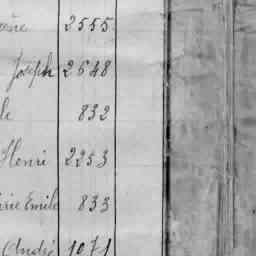 2555
Joseph 2648
832
Henri 2253
Emile 833
André 1071